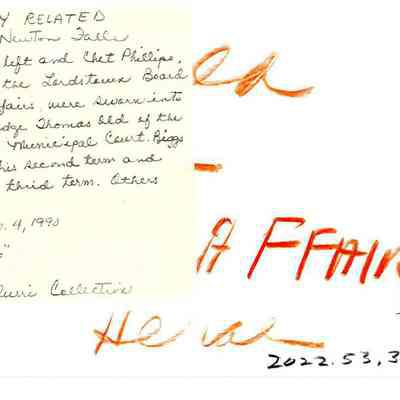 Y RELATED
Newton Falls
left and Chet Phillips,
the Lordstown Board
fairs, were sworn into
dge Thomas Old of the
Municipal Court. Riggs
his second term and
third term. Others
. 4, 1990
"
Collection
ed
-
AFFAIR
2022.53.3